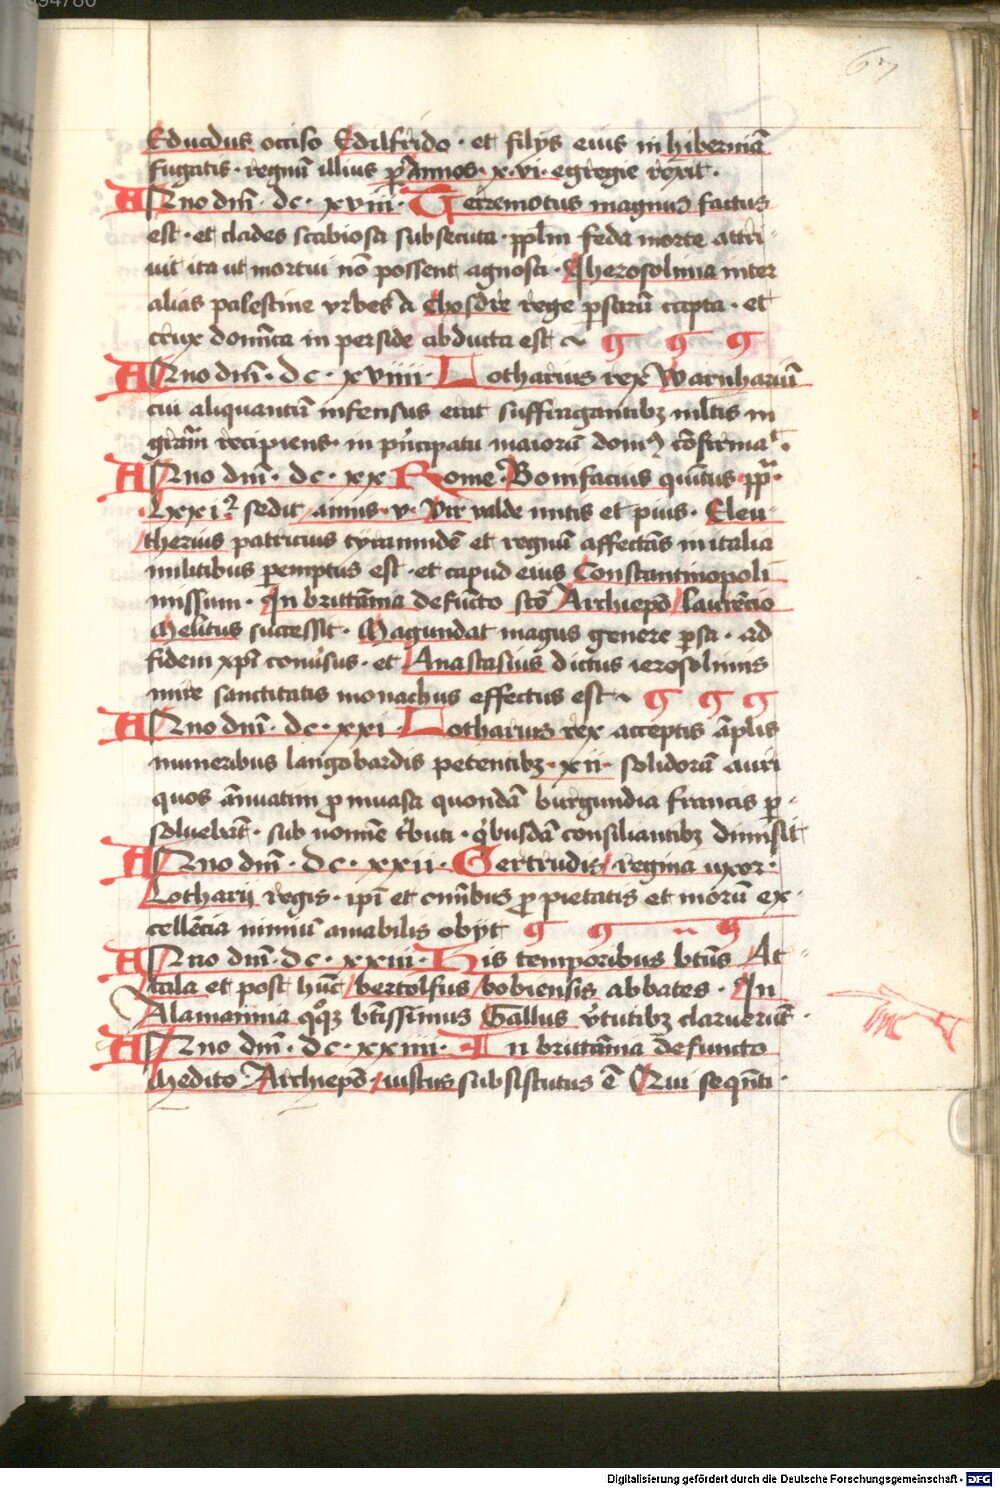 67
Educdus occiso Edilfrido · et filijs eius in hiberniā
fugatis · regnū illius p Annos · x · vi · egregie rexit ·
ANno dnī · dc · xviii · Terremotus magnus factus
est · et clades scabiosa subsecuta · pplm feda morte attri
uit ita ut mortui nō possent agnosci · Jherosolima inter
alias palestine vrbes a Chosdre rege psarū capta · et
crux domīca in perside abducta est ~
ANno dnī · dc · xviiii · Lotharius rex Warnhariū
cui aliquantū infensus erat suffragantibz mltis in
gram recipiens · in pncipatu maiorū domꝰ cōfirmat ·
ANno dnī · dc · xx Rome · Bonifacius quītus pp ·
lxxi · sedit annis · v · Vir valde mitis et pius · Eleu
therius patricius tyrannidē et regnū affectās in italia
militibus pemptus est · et capud eius Constantinopoli
missum · In brittānia defūcto scō Archiepō laurēcio
Melitus successit · Magundat magus genere psa · ad
fidem xpi conusus · et Anastasius dictus ierosolimis
mire sanctitatis monachus effectus est ~
ANno dnī · dc · xxi · Lotharius rex acceptis āplis
muneribus langobardis petentibz · xii · solidorū auri
quos ānuatim pro inuasa quondā burgundia francis p
soluebāt · sub nomīe tbuti · qbusdā consiliantibz dimisit
ANno dnī · dc · xxii · Gertrudis regina uxor ·
Lotharij regis · ipi et omībus pro pietatis et morū ex
cellēcia nimiū amabilis obijt
ANno dnī · dc · xxiii · His temporibus btus At
tala et post hūc bertolfus bobiensis abbates · In
Alamannia qqz btissimus Gallus vtutibz claruerūt ·
ANno dnī · dc · xxiiii · In brittānia defuncto
Medito Archiepō iustus subsistutus ē Qui sequti ·
Digitalisierung gefördert durch die Deutsche Forschungsgemeinschaft · DFG